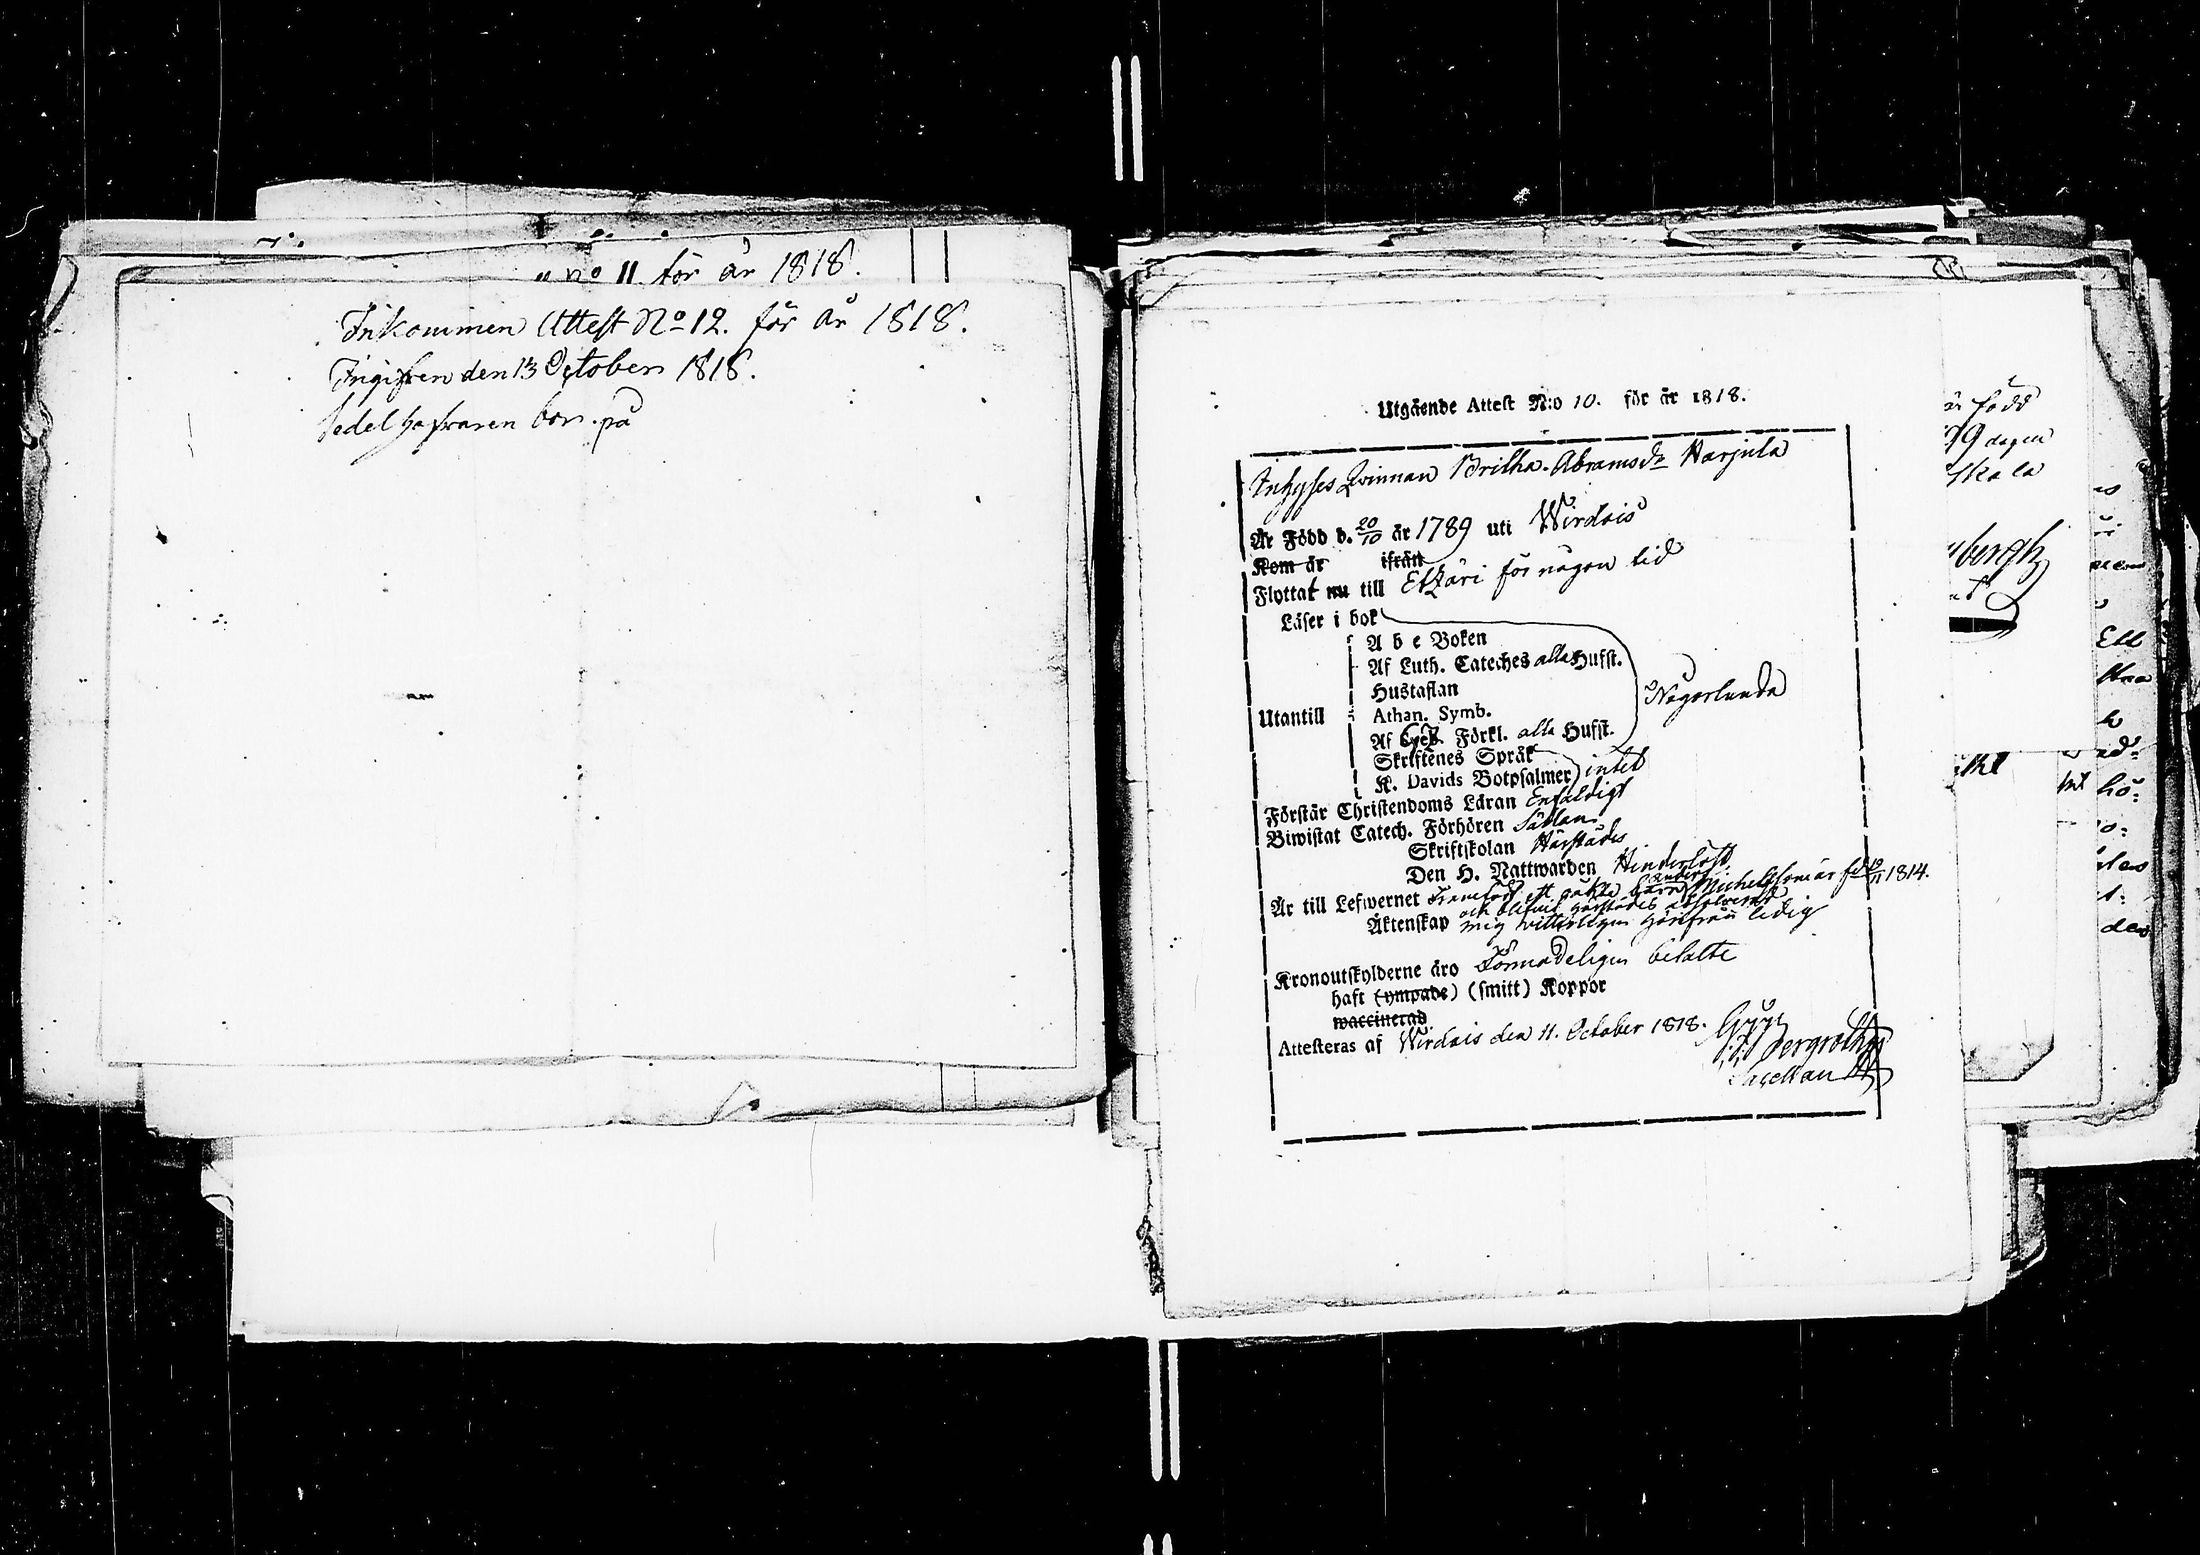 no 11 för år 1818.
Inkommen Attest No 12. för år 1818.
Ingifven den 13 October 1818.
Sedelhafvaren bor på
Utgående Attest N:o 10. för år 1818.
Inhyses Qvinnan Britha Abramsdr Harjula
Är Född d. 20/10 år 1789 uti Wirdois
Kom år ifrån
Flyttat nu till Etzäri för någon tid
Läser i bok
A b c Boken
Af Luth. Cateches alla Hufst.
Hustaflan
Någorlunda
Utantill
Athan. Symb.
Af Förkl. alla Hufst.
Skriftenes Språk
K. Davids Botpsalmer intet
Förstår Christendoms Läran Enfaldigt
Biwistat Catech. Förhören Sällan
Skriftskolan Härstädes
Den H. Nattwarden Hinderlöst
Är till Lefwernet Framfödt ett oäkta barn Michel som är föd 19/11 1814.
och blifvit härstädes absolverad
Äktenskap mig vitterligen härifrån ledig
Kronoutskylderne äro Förmodeligen betalte
haft (ympade) (smitt) Koppor
waccinerad
Attesteras af Wirdois den 11. October 1818.
Bergroth
Sacellan
är född
99 dagen
skala
bergh
Ett
hö:
des